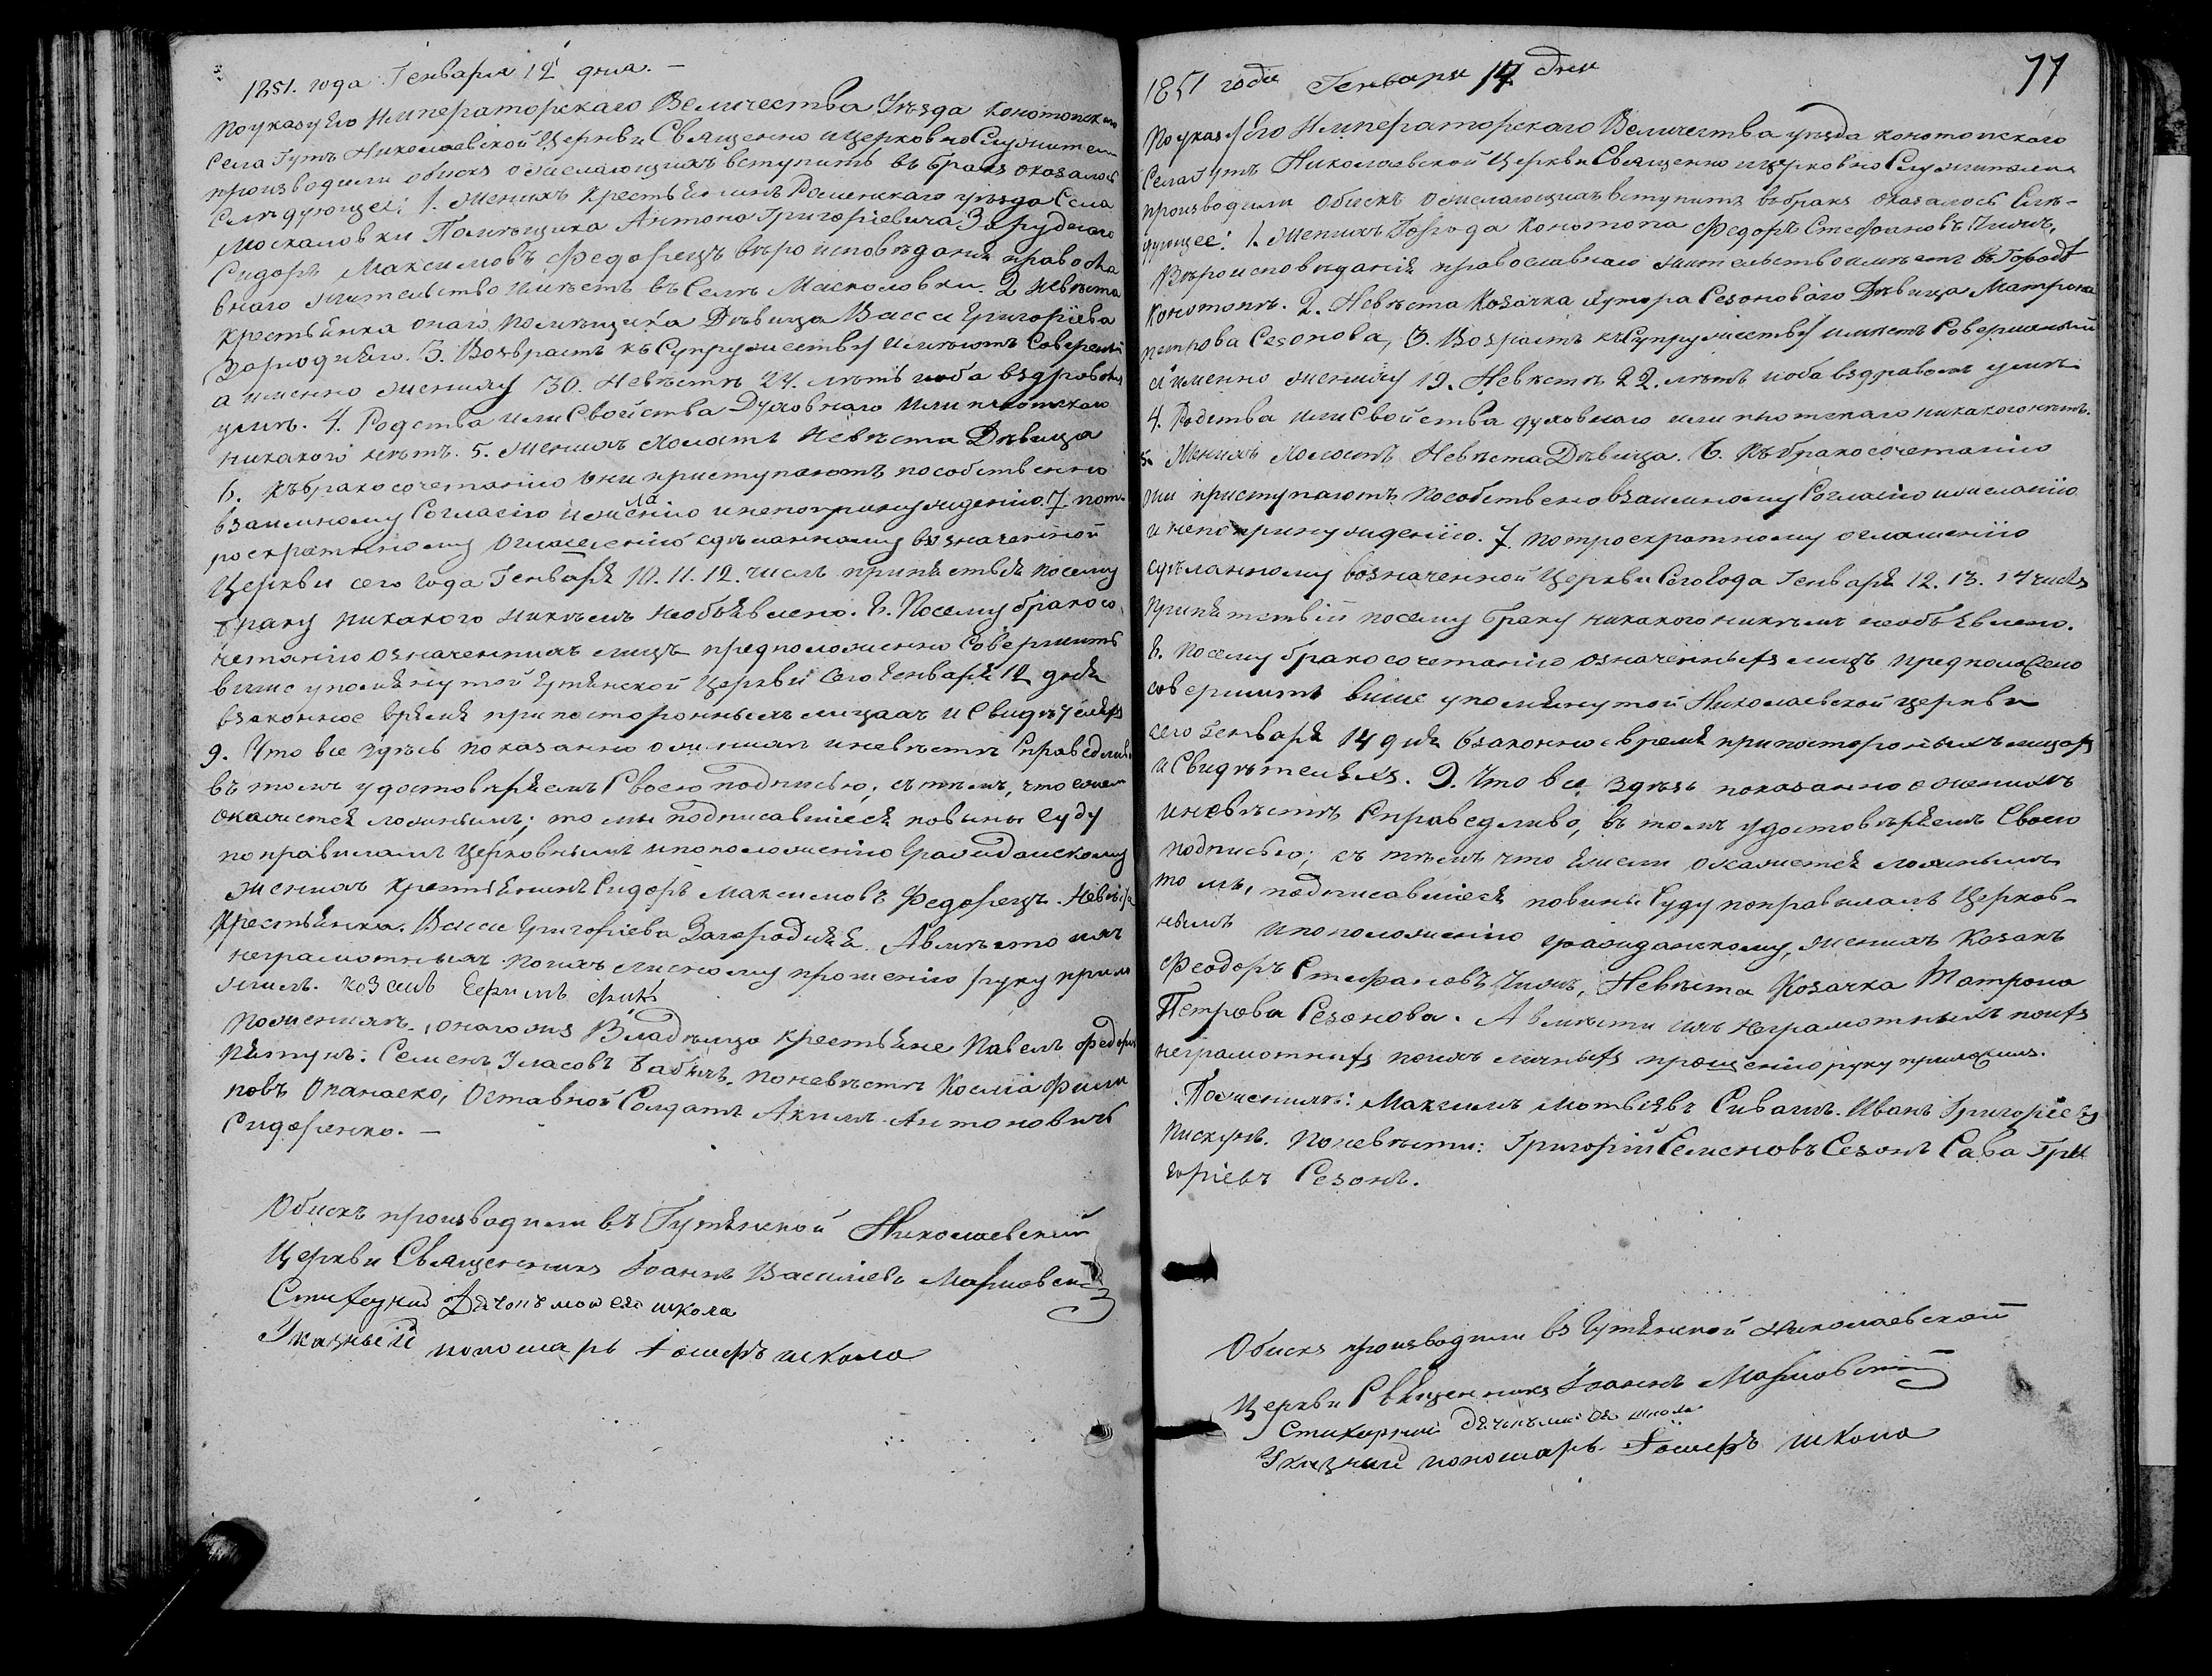 1851. года Генваря 12 дня. –
По указу Его Императорскаго Величества Уезда Конотопскаго
Села Гутъ Николаевской Церкви Священно и церковно Служители
производили обискъ о желающихъ вступить въ бракъ оказалось
Следующее: 1. Женихъ Крестьянинъ Роменскаго уезда Села
Москаловки Помѣщика Антона Григоріевича Заруднаго
Сидоръ Максимовъ Федорецъ вѣроисповѣданія правосла
внаго жительство имѣетъ въ Селѣ Москаловки. 2 Невѣста
крестьянка онаго помѣщика Дѣвица Васса Григоріева
3. Возврастъ къ Супружеству имѣютъ Соверше
а именно жениху 30. Невѣсте 24. летъ и оба въ здравомъ
умѣ. 4. Родства или Свойства Духовнаго или плотскаго
никакого нѣтъ. 5. Женихъ холостъ Невѣста Дѣвица
6. Къ бракосочетанію они приступаютъ по собственно
взаимному Согласію и желанію и не по принуждению. 7. по т
роекратному Оглашенію сделанному въ означенной
Церкви сего года Генваря 10. 11. 12. числъ припятствія посему
браку никакого никѣмъ необъявлено. 8. Посему бракосо
четанію означенныхъ лицъ предположенно Совершить
въ више упомянутой Гутянской Церкви сего Генваря 12 дня
въ законное время при посторонныхъ лицахъ и Свидѣтеляхъ
9. Что все здѣсь показанно о женихѣ и невѣстѣ Справедливо
въ томъ удостовѣряемъ Своею подписью; съ тѣмъ, что ежели
окажется ложнымъ; то мы подписавшіеся повины Суду
по правиламъ Церковнымъ и по положенію Гражданскому
женихъ Крестьянинъ Сидоръ Максимовъ Федорецъ. Невѣста
Крестьянка. Васса Григоріева Загородняя. А вмѣсто ихъ
неграмотныхъ по ихъ личному прошенію руку прило
жилъ. козакъ
По женихѣ. онаго же Владѣльца крестьяне Павелъ Федоровъ
Пятунъ: Семенъ Уласовъ по невѣстѣ Косма Фили
повъ Опанаско, Оставной Солдатъ Акимъ Антоновичъ
Сидоренко. –
Обискъ производили въ Гутянской Николаевской
Церкви Священникъ Іоаннъ Василіевъ
Стихарний Дячокъ школа
Указный пономарь школа
77
1851 года Генваря 14 Дня
По указу Его Императорскаго Величества уѣзда конотопскаго
Села Гутъ Николаевской Церкви Священно и церковно Служители
производили обискъ о желающихъ вступить въ бракъ оказалось Слѣ-
дующее: 1. Женихъ Города Конотопа Федоръ Стефановъ
Вѣроисповѣданія православнаго жительство имѣетъ въ Городѣ
Конотопѣ. 2. Невѣста Козачка хутора Сезоноваго Дѣвица Матрона
петрова Сезонова, 3. Возрастъ къ Супружеству имѣютъ Совершеный
а именно жениху 19. Невѣстѣ 22. летъ и оба въ здравомъ умѣ
4. Родства или Свойства духовнаго или плотскаго никакого нѣтъ.
5. Женихъ Холостъ Невѣста Дѣвица. 6. Къ бракосочетанію
они приступаютъ по собственo взаимному Согласію и желанію
и не по принуждению. 7. по троекратному оглашенію
сдѣланному въ означенной Церкви Сего Года Генваря 12. 13. 14 числъ
припятствій посему браку никакого никѣмъ необъявлено.
8. посему бракосочетанію означенныхъ лицъ предположено
совершить више упомянутой Николаевской церкви
сего Генваря 14 дня въ законно время при посторонныхъ лицахъ
и Свидѣтеляхъ. 9. Что все здѣсь показанно о женихѣ
и невѣстѣ Справедливо, въ томъ удостовѣряемъ Своею
подписью; съ тѣмъ что ежели окажется ложнымъ
то мы, подписавшіеся повины Суду по правиламъ Церков-
нымъ и по положенію гражданскому, женихъ Козакъ
Феодоръ Стефановъ Невѣста Козачка Матрона
Петрова Сезонова. А вмѣсти ихъ неграмотныхъ по ихъ
неграмотныхъ по ихъ личныхъ прощению руку приложилъ.
По женихѣ: Максимъ Мотвѣевъ Сивашъ. Иванъ Григоріевъ
Пискунъ. По невѣсти: Григорій Семеновъ Сезонъ Сава Гри
горіевъ Сезонъ.
Обискъ производили въ Гутянской Николаевской
Церкви Священникъ Іоаннъ
Стихарний Дячокъ школа
Указний пономарь школа